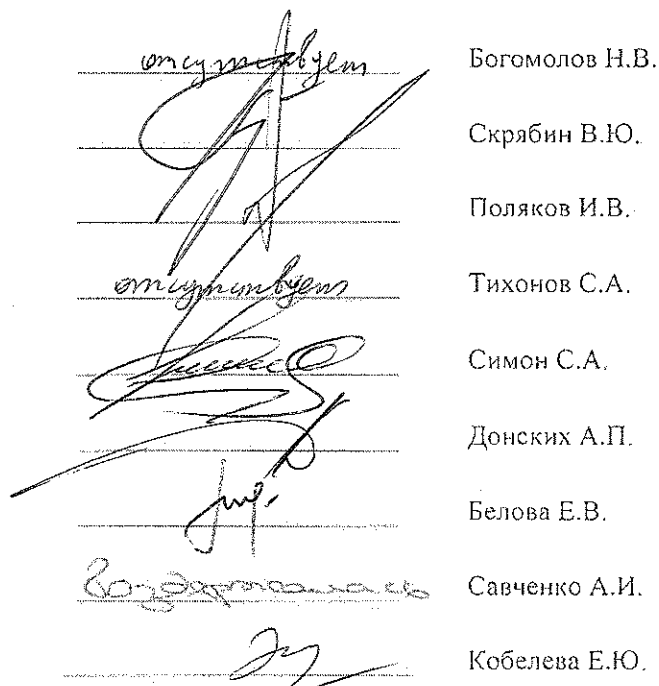 отсутствует Богомолов Н.В.
Скрябин В.Ю.
Поляков И.В.
отсутствует Тихонов С.А.
Симон С.А.
Донских А.П.
Белова Е.В.
Воздержалась Савченко А.И.
Кобелева Е.Ю.